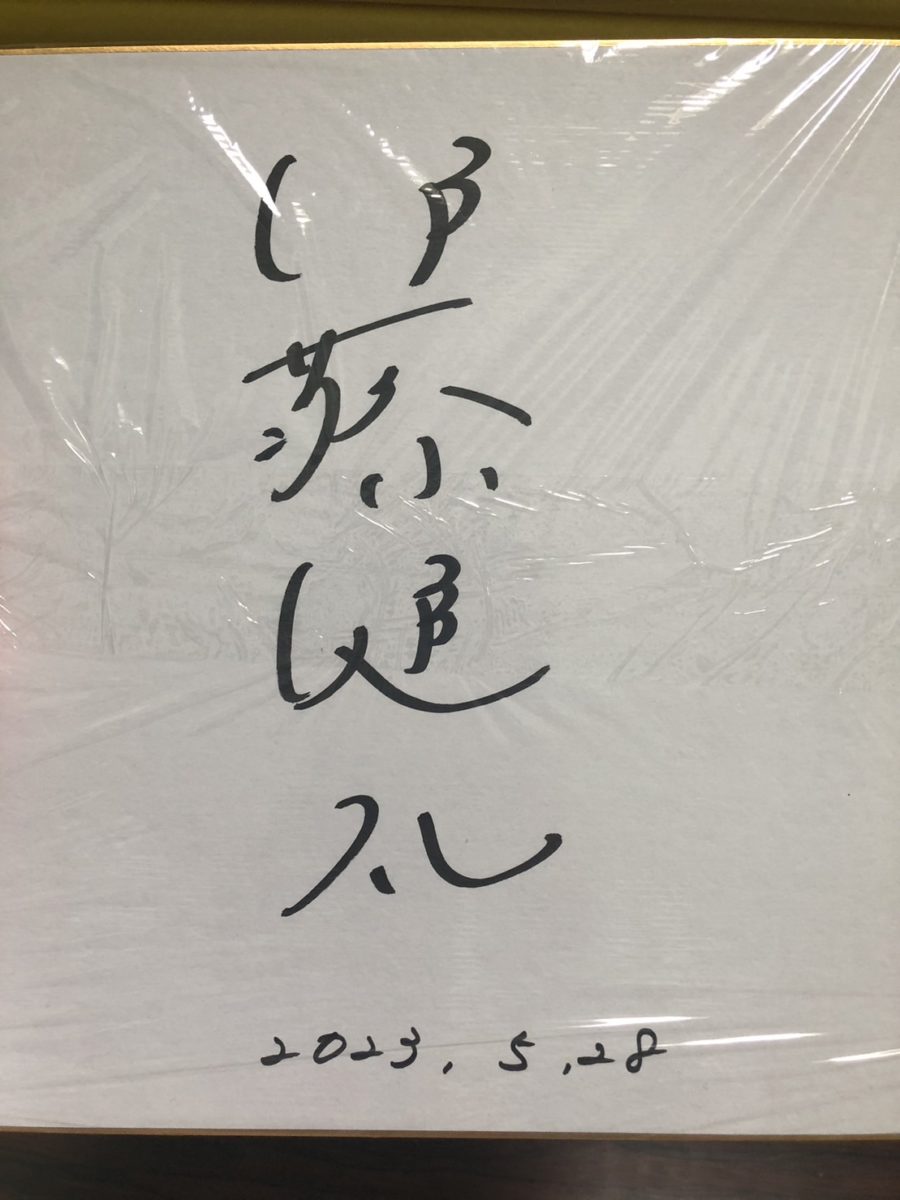 伊藤健
2023.5.28